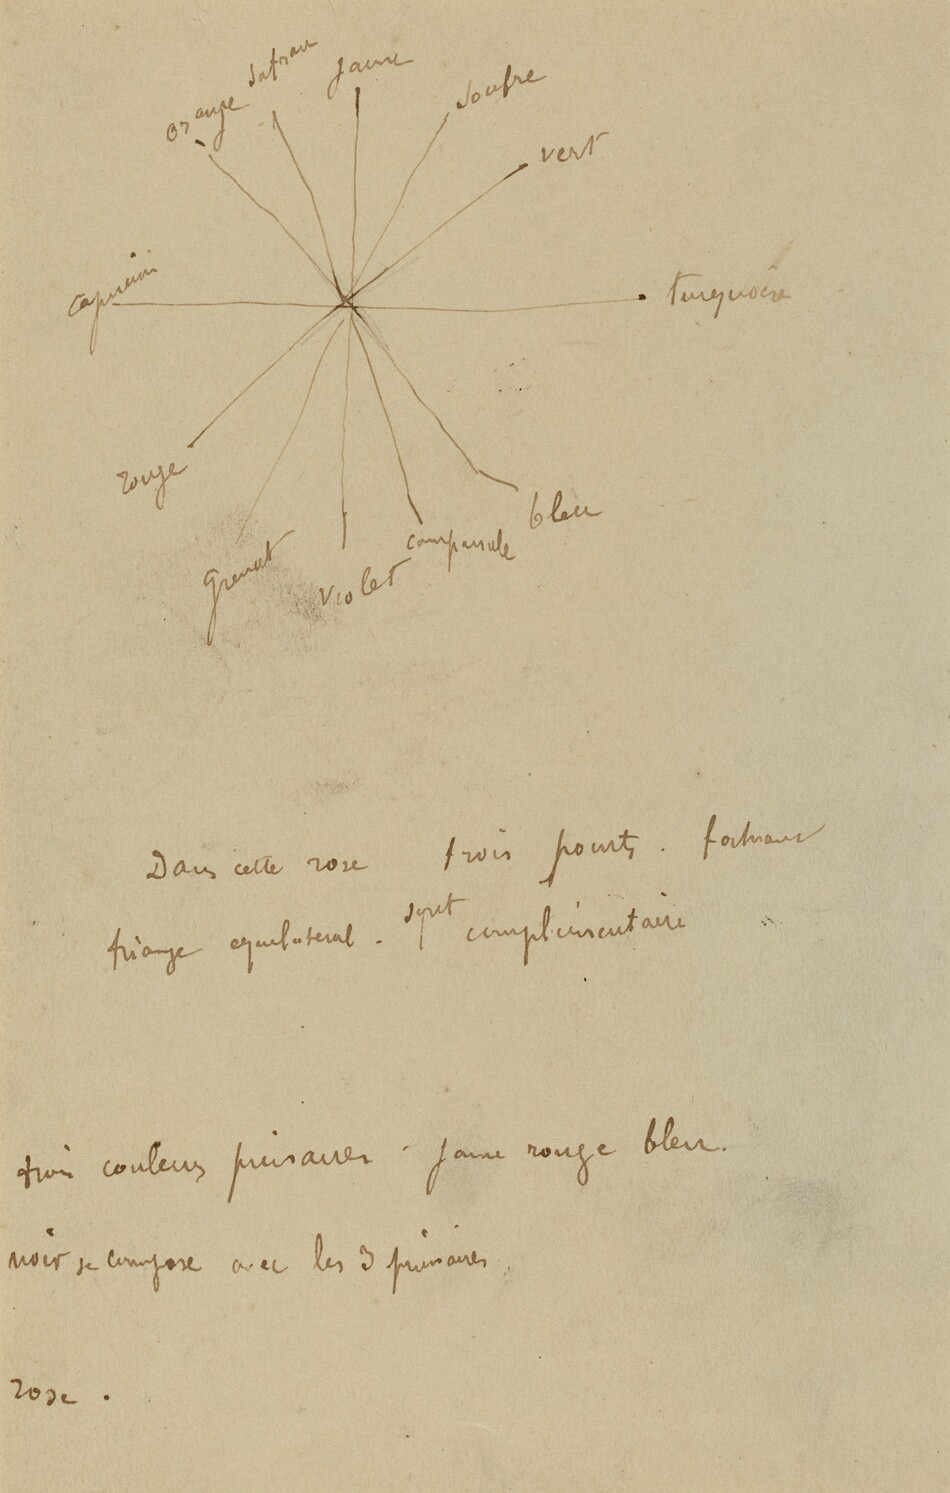 orange
safran
jaune
soufre
vert
turquoise
capucine
rouge
grenat
violet
campanule
bleu
Dans cette rose trois points. formant
triange equilateral. sont complimentaire
trois couleurs primaires - jaune rouge bleu.
noir se compose avec les 3 primaires.
rose.